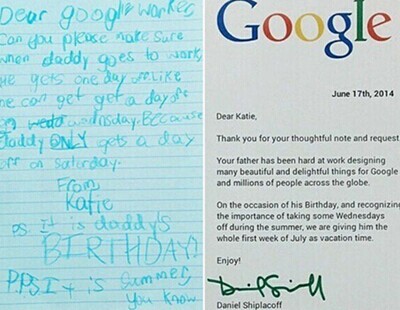 Dear google worker
Can you please make sure
when daddy goes to work
he gets one day off like
he can get get a day off
on wedo wednsday. Because
daddy ONLY gets a day
off on saturday.
From
Katie
ps. it is daddy's
BIRTHDAY!
P.P.S It is summer
You know
Google
June 17th, 2014
Dear Katie,
Thank you for your thoughtful note and request
Your father has been hard at work designing
many beautiful and delightful things for Google
and millions of people across the globe.
On the occasion of his Birthday, and recognizing
the importance of taking some Wednesdays
off during the summer, we are giving him the
whole first week of July as vacation time.
Enjoy!
Daniel Shiplacoff